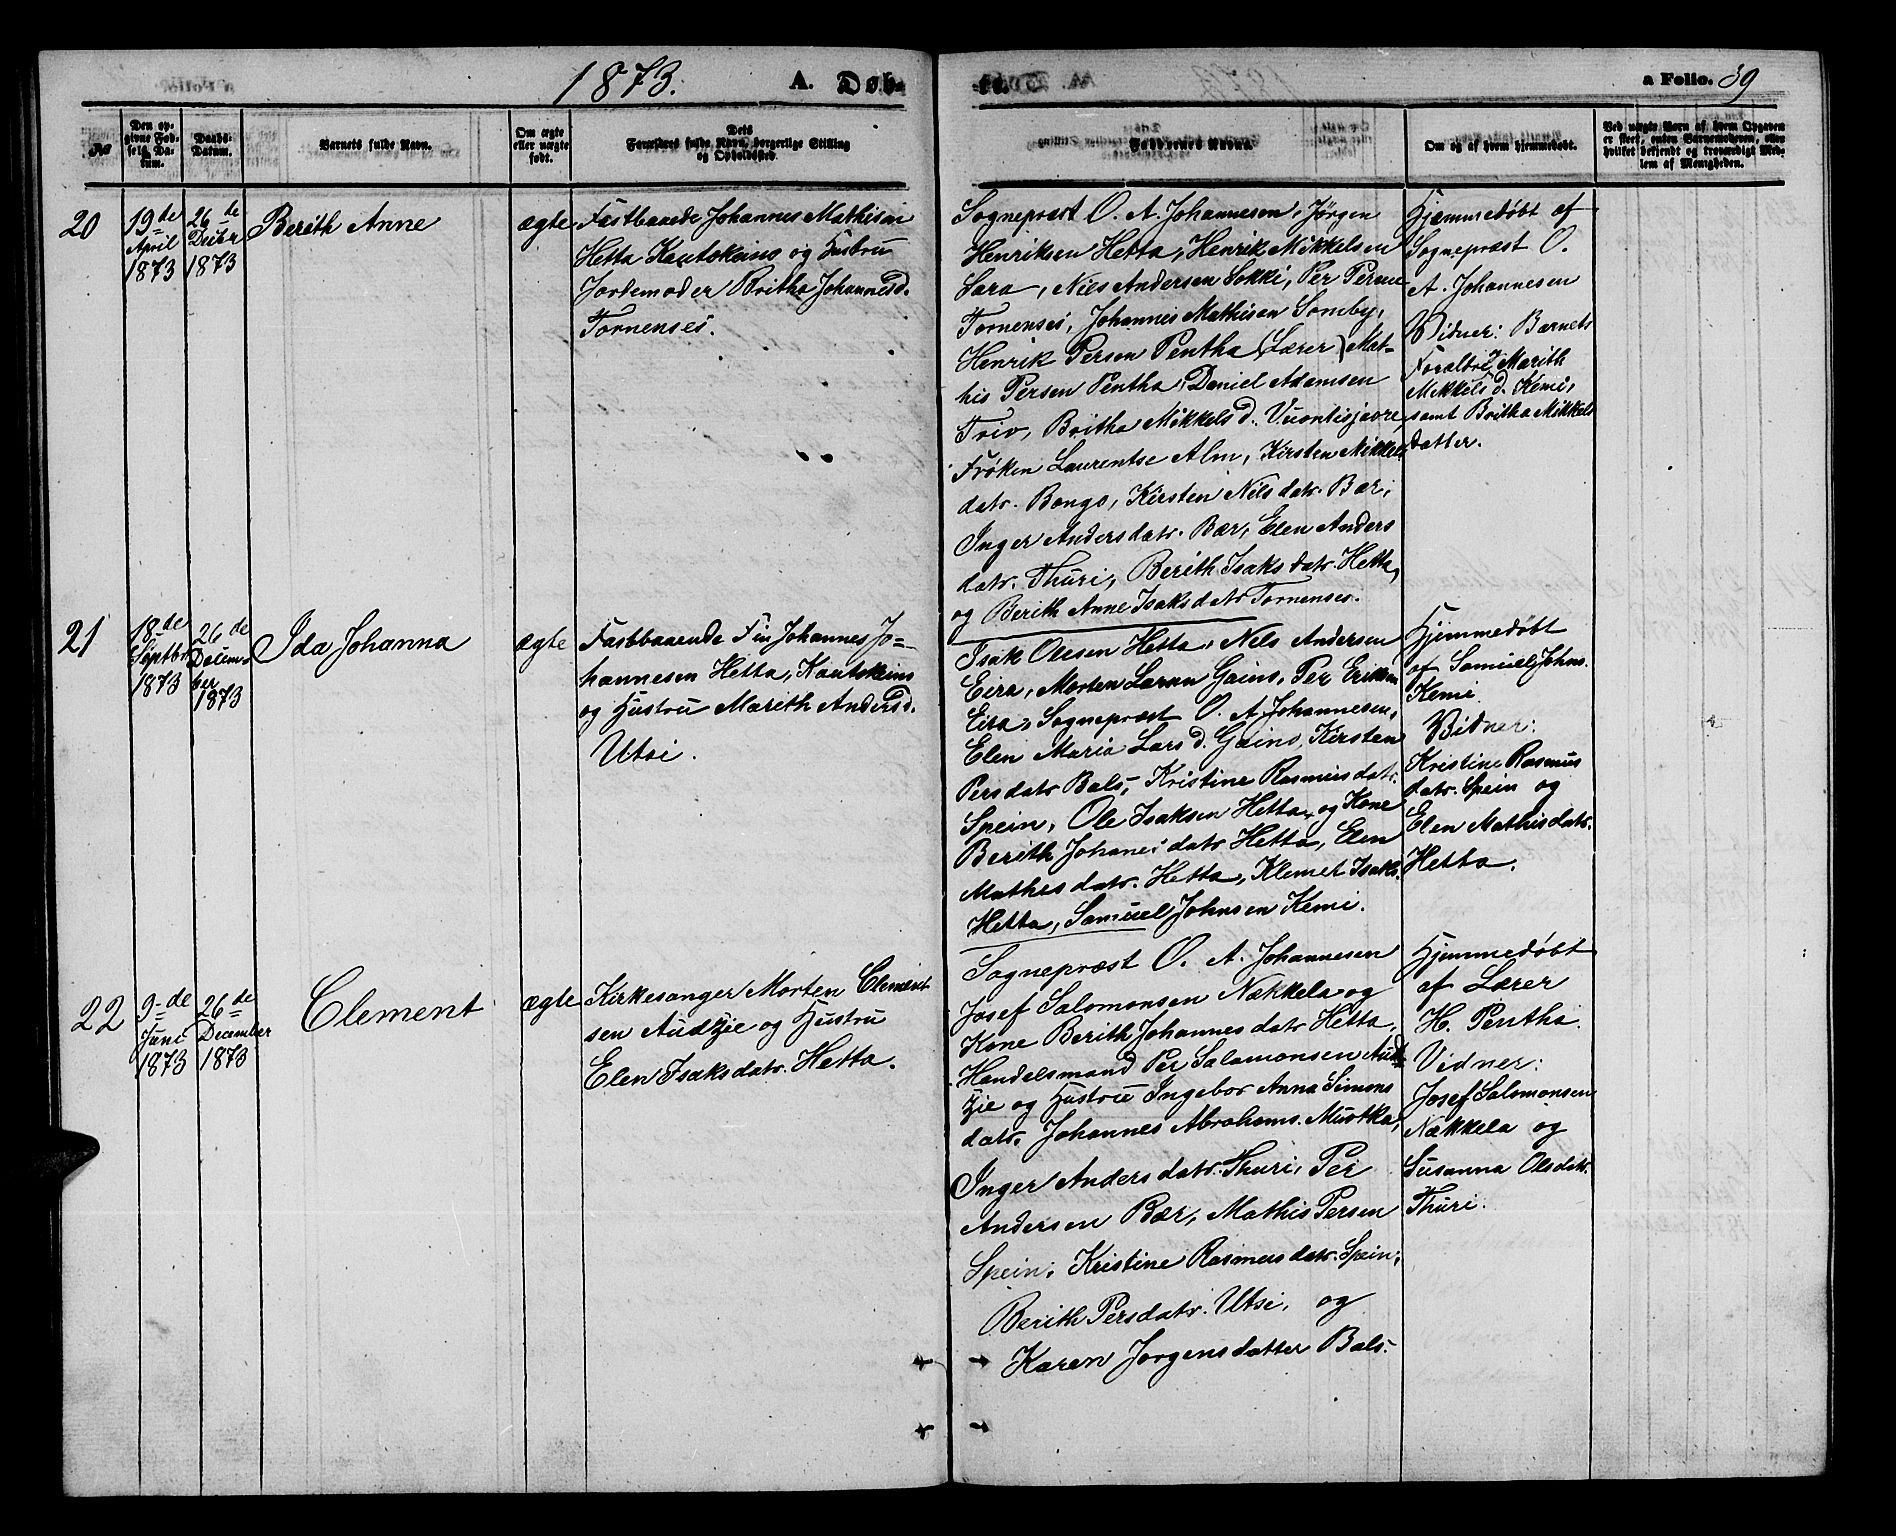 1873.
A. Døb-
te.
a Folio. 39
No
Den op-
givne Fød-
sels Da-
tum.
Daabs-
Datum.
Barnets fulde Navn.
Om ægte
eller uægte
født.
Dets
Forældres fulde Navn, borgerlige Stilling
og Opholdssted.
Faddernes Navne.
Om og af hvem hjemmedøbt.
Ved uægte Barn af hvem Opgaven
er skeet, enten Barnemoderen, eller
hvilket bekjendt og troværdigt Med-
lem af Menigheden.
20
19de
April
1873
26de
Decbr
1873
Berith Anne
ægte
Fastboende Johannes Mathisen
Hetta Kautokeino og Hustru
Jordemoder Britha Johannesd.
Tornenses.
Sognepræst O. A. Johannesen, Jørgen
Henriksen Hetta, Henrik Mikkelsen
Sara, Niels Andersen Sokki, Per Persen
Tornenses, Johannes Mathisen Somby,
Henrik Persen Pentha (Lærer) Mat-
his Persen Pentha, Daniel Adamsen
Triv, Britha Mikkelsd. Vuontisjavre,
Frøken Laurentse Alm, Kirsten Mikkels
datr. Bongo, Kirsten Nilsdatr. Bær,
Inger Andersdatr. Bær, Elen Anders
datr. Thuri, Berith Isaksdatr. Hetta,
og Berith Anne Isaksdatr Tornenses.
Hjemmedøbt af
Sognepræst O.
A. Johannesen
Vidner: Barnets
Forældre, Marith
Mikkelsd. Kemi,
samt Britha Mikkels
datter.
21
18de
Septbr
1873
26de
Decem-
ber
1873
Ida Johanna
ægte
Fastboende Fin Johannes Jo-
hannesen Hetta, Kautokeino
og Hustru Marith Andersd.
Utsi.
Isak Olesen Hetta, Nils Andersen
Eira, Morten Larsen Gaino, Per Eriksen
Eira, Sognepræst O. A. Johannesen,
Elen Maria Larsd. Gaino, Kirsten
Persdatr Bals, Kristine Rasmusdatr.
Spein, Ole Isaksen Hetta, og Kone
Berith Johanesdatr Hetta, Elen
Mathisdatr. Hetta, Klemet Isaks.
Hetta, Samuel Johnsen Kemi.
Hjemmedøbt
af Samuel Johns.
Kemi
Vidner:
Kristine Rasmus
datr. Spein og
Elen Mathisdatr.
Hetta.
22
9-de
Juni
1873
26de
December
1873
Clement
ægte
Kirkesanger Morten Clement
sen Audzie og Hustru
Elen Isaksdatr. Hetta.
Sognepræst O. A. Johannesen
Josef Salomonsen Nækkela og
Kone Berith Johannesdatr Hetta,
Handelsmand Per Salamonsen Aud-
zie og Hustru Ingebor Anna Simons
datr, Johannes Abrahams. Muotka,
Inger Andersdatr. Thuri, Per
Andersen Bær, Mathis Persen
Spein, Kristine Rasmusdatr. Spein,
Berith Persdatr. Utsi, og
Karen Jorgensdatter Bals.
Hjemmedøbt
af Lærer
H. Pentha.
Vidner:
Josef Salomonsen
Nækkela og
Susanna Olsdatr.
Thuri.